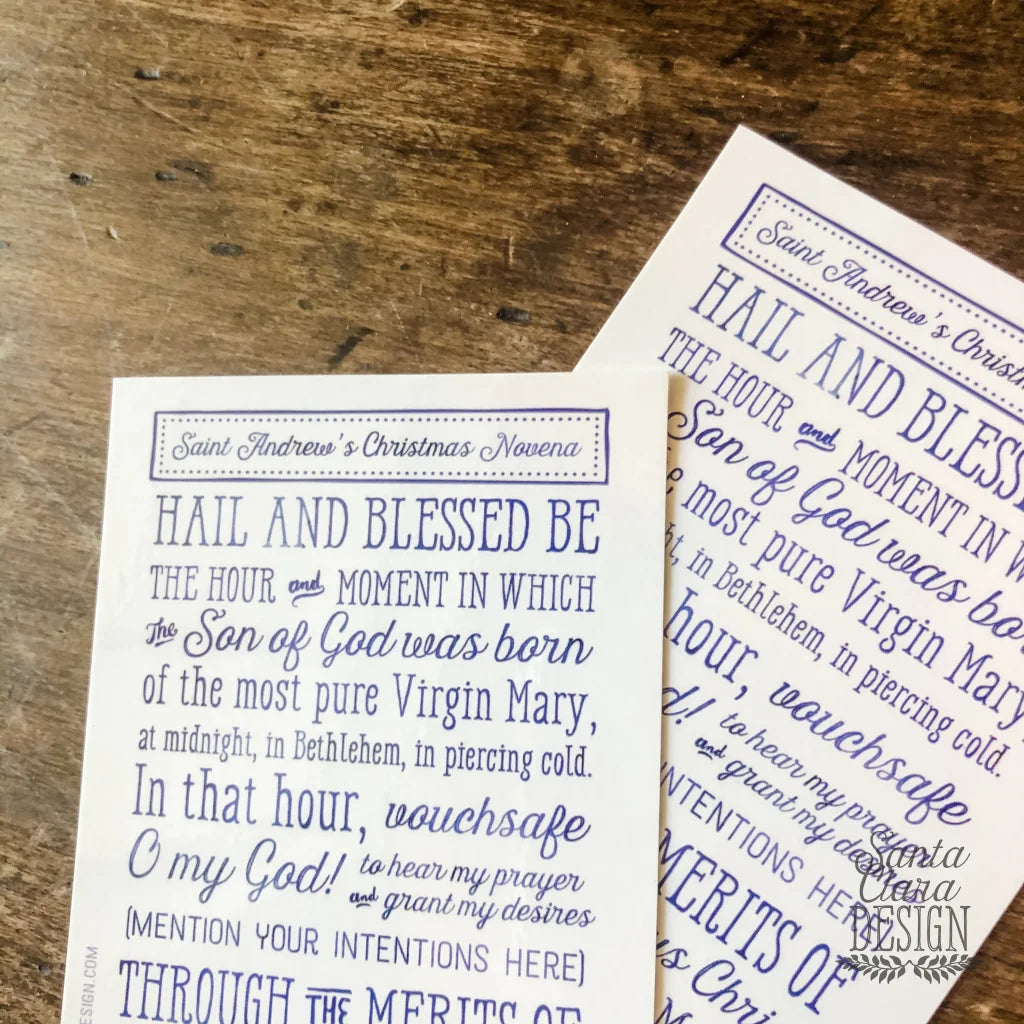 Saint Andrew's Christmas Novena
HAIL AND BLESSED BE
THE HOUR and MOMENT IN WHICH
The Son of God was born
of the most pure Virgin Mary,
at midnight, in Bethlehem, in piercing cold.
In that hour, vouchsafe
O my God! to hear my prayer
and grant my desires
(MENTION YOUR INTENTIONS HERE)
THROUGH THE MERITS OF
DESIGN.COM
Saint Andrew's
HAIL AND
THE HOUR and MOMENT IN
Son of God was
most pure Virgin Mary
in Bethlehem, in piercing cold.
hour, vouchsafe
to hear my prayer
and grant my
INTENTIONS HERE)
MERITS OF
Santa
Clara
DESIGN